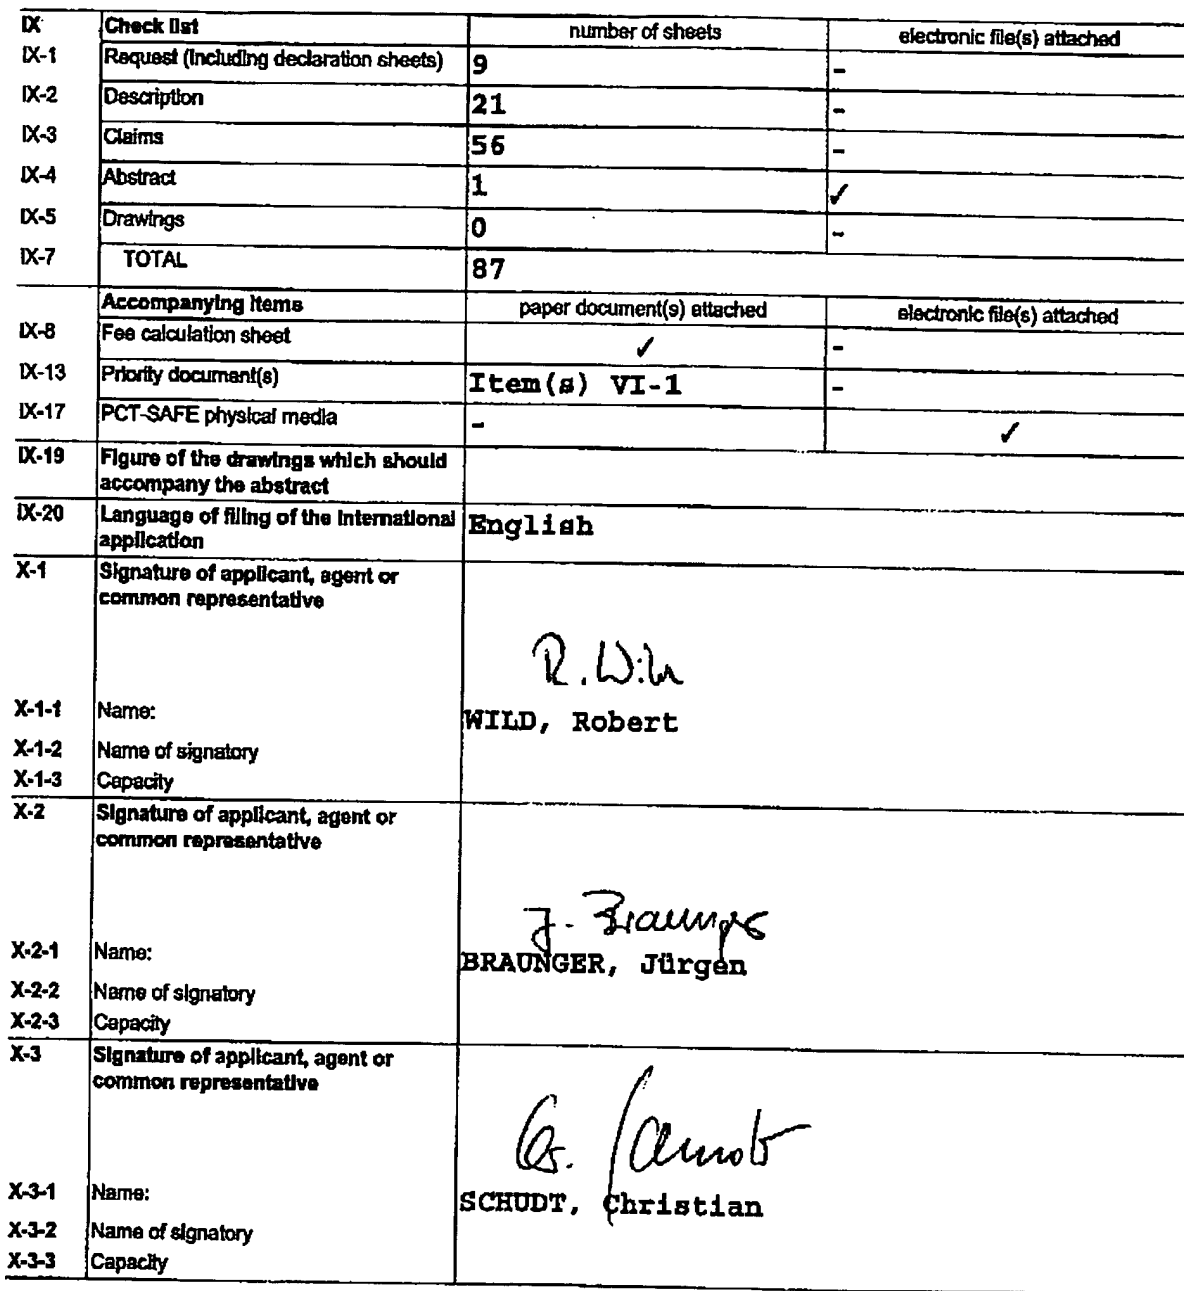 IX Check list number of sheets electronic file(s) attached
IX-1 Request (including declaration sheets) 9 -
IX-2 Description 21 -
IX-3 Claims 56 -
IX-4 Abstract 1 ✓
IX-5 Drawings 0 -
IX-7 TOTAL 87
Accompanying Items paper document(s) attached electronic file(s) attached
IX-8 Fee calculation sheet ✓ -
IX-13 Priority document(s) Item(s) VI-1 -
IX-17 PCT-SAFE physical media - ✓
IX-19 Figure of the drawings which should
accompany the abstract
IX-20 Language of filing of the international English
application
X-1 Signature of applicant, agent or
common representative
R. Wild
X-1-1 Name: WILD, Robert
X-1-2 Name of signatory
X-1-3 Capacity
X-2 Signature of applicant, agent or
common representative
J. Braunger
X-2-1 Name: BRAUNGER, Jürgen
X-2-2 Name of signatory
X-2-3 Capacity
X-3 Signature of applicant, agent or
common representative
X-3-1 Name: SCHUDT, Christian
X-3-2 Name of signatory
X-3-3 Capacity